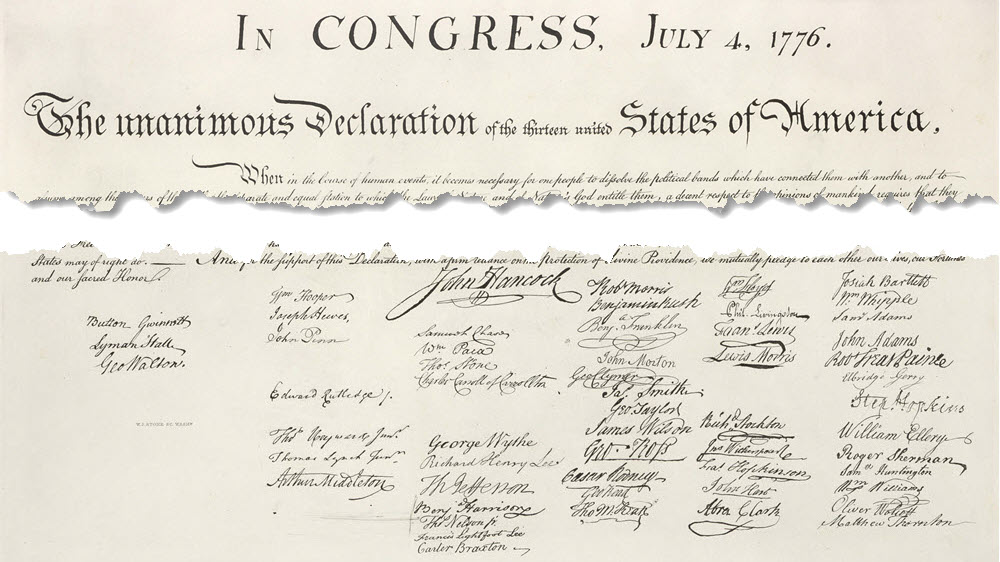 IN CONGRESS, JULY 4, 1776.
The unanimous Declaration of the thirteen united States of America,
When in the Course of human events, it becomes necessary for one people to dissolve the political bands which have connected them with another, and to
among the and equal station to which the Laws of and of Nature's God entitle them, a decent respect to the opinions of mankind requires that they
States may of right do. And for the support of this Declaration, with a firm reliance on the Protection of divine Providence, we mutually pledge to each other our Lives, our Fortunes
and our sacred Honor.
Button Gwinnett
Lyman Hall
Geo Walton.
W. J. STONE SC. WASHN
Wm Hooper
Joseph Hewes,
John Penn
Edward Rutledge /.
Thos Heyward Junr.
Thomas Lynch Junr.
Arthur Middleton
John Hancock
Samuel Chase
Wm Paca
Thos Stone
Charles Carroll of Carrollton
George Wythe
Richard Henry Lee
Th Jefferson
Benj Harrison
Thos Nelson jr.
Francis Lightfoot Lee
Carter Braxton
Robt Morris
Benjamin Rush
Benj. Franklin
John Morton
Geo Clymer
Jas. Smith
Geo. Taylor
James Wilson
Geo. Ross
Caesar Rodney
Geo Read
Tho M:Kean
Wm Floyd
Phil. Livingston
Frans. Lewis
Lewis Morris
Richd. Stockton
Jno Witherspoon
Fras. Hopkinson
John Hart
Abra Clark
Josiah Bartlett
Wm Whipple
Saml Adams
John Adams
Robt Treat Paine
Elbridge Gerry
Step. Hopkins
William Ellery
Roger Sherman
Saml Huntington
Wm Williams
Oliver Wolcott
Matthew Thornton